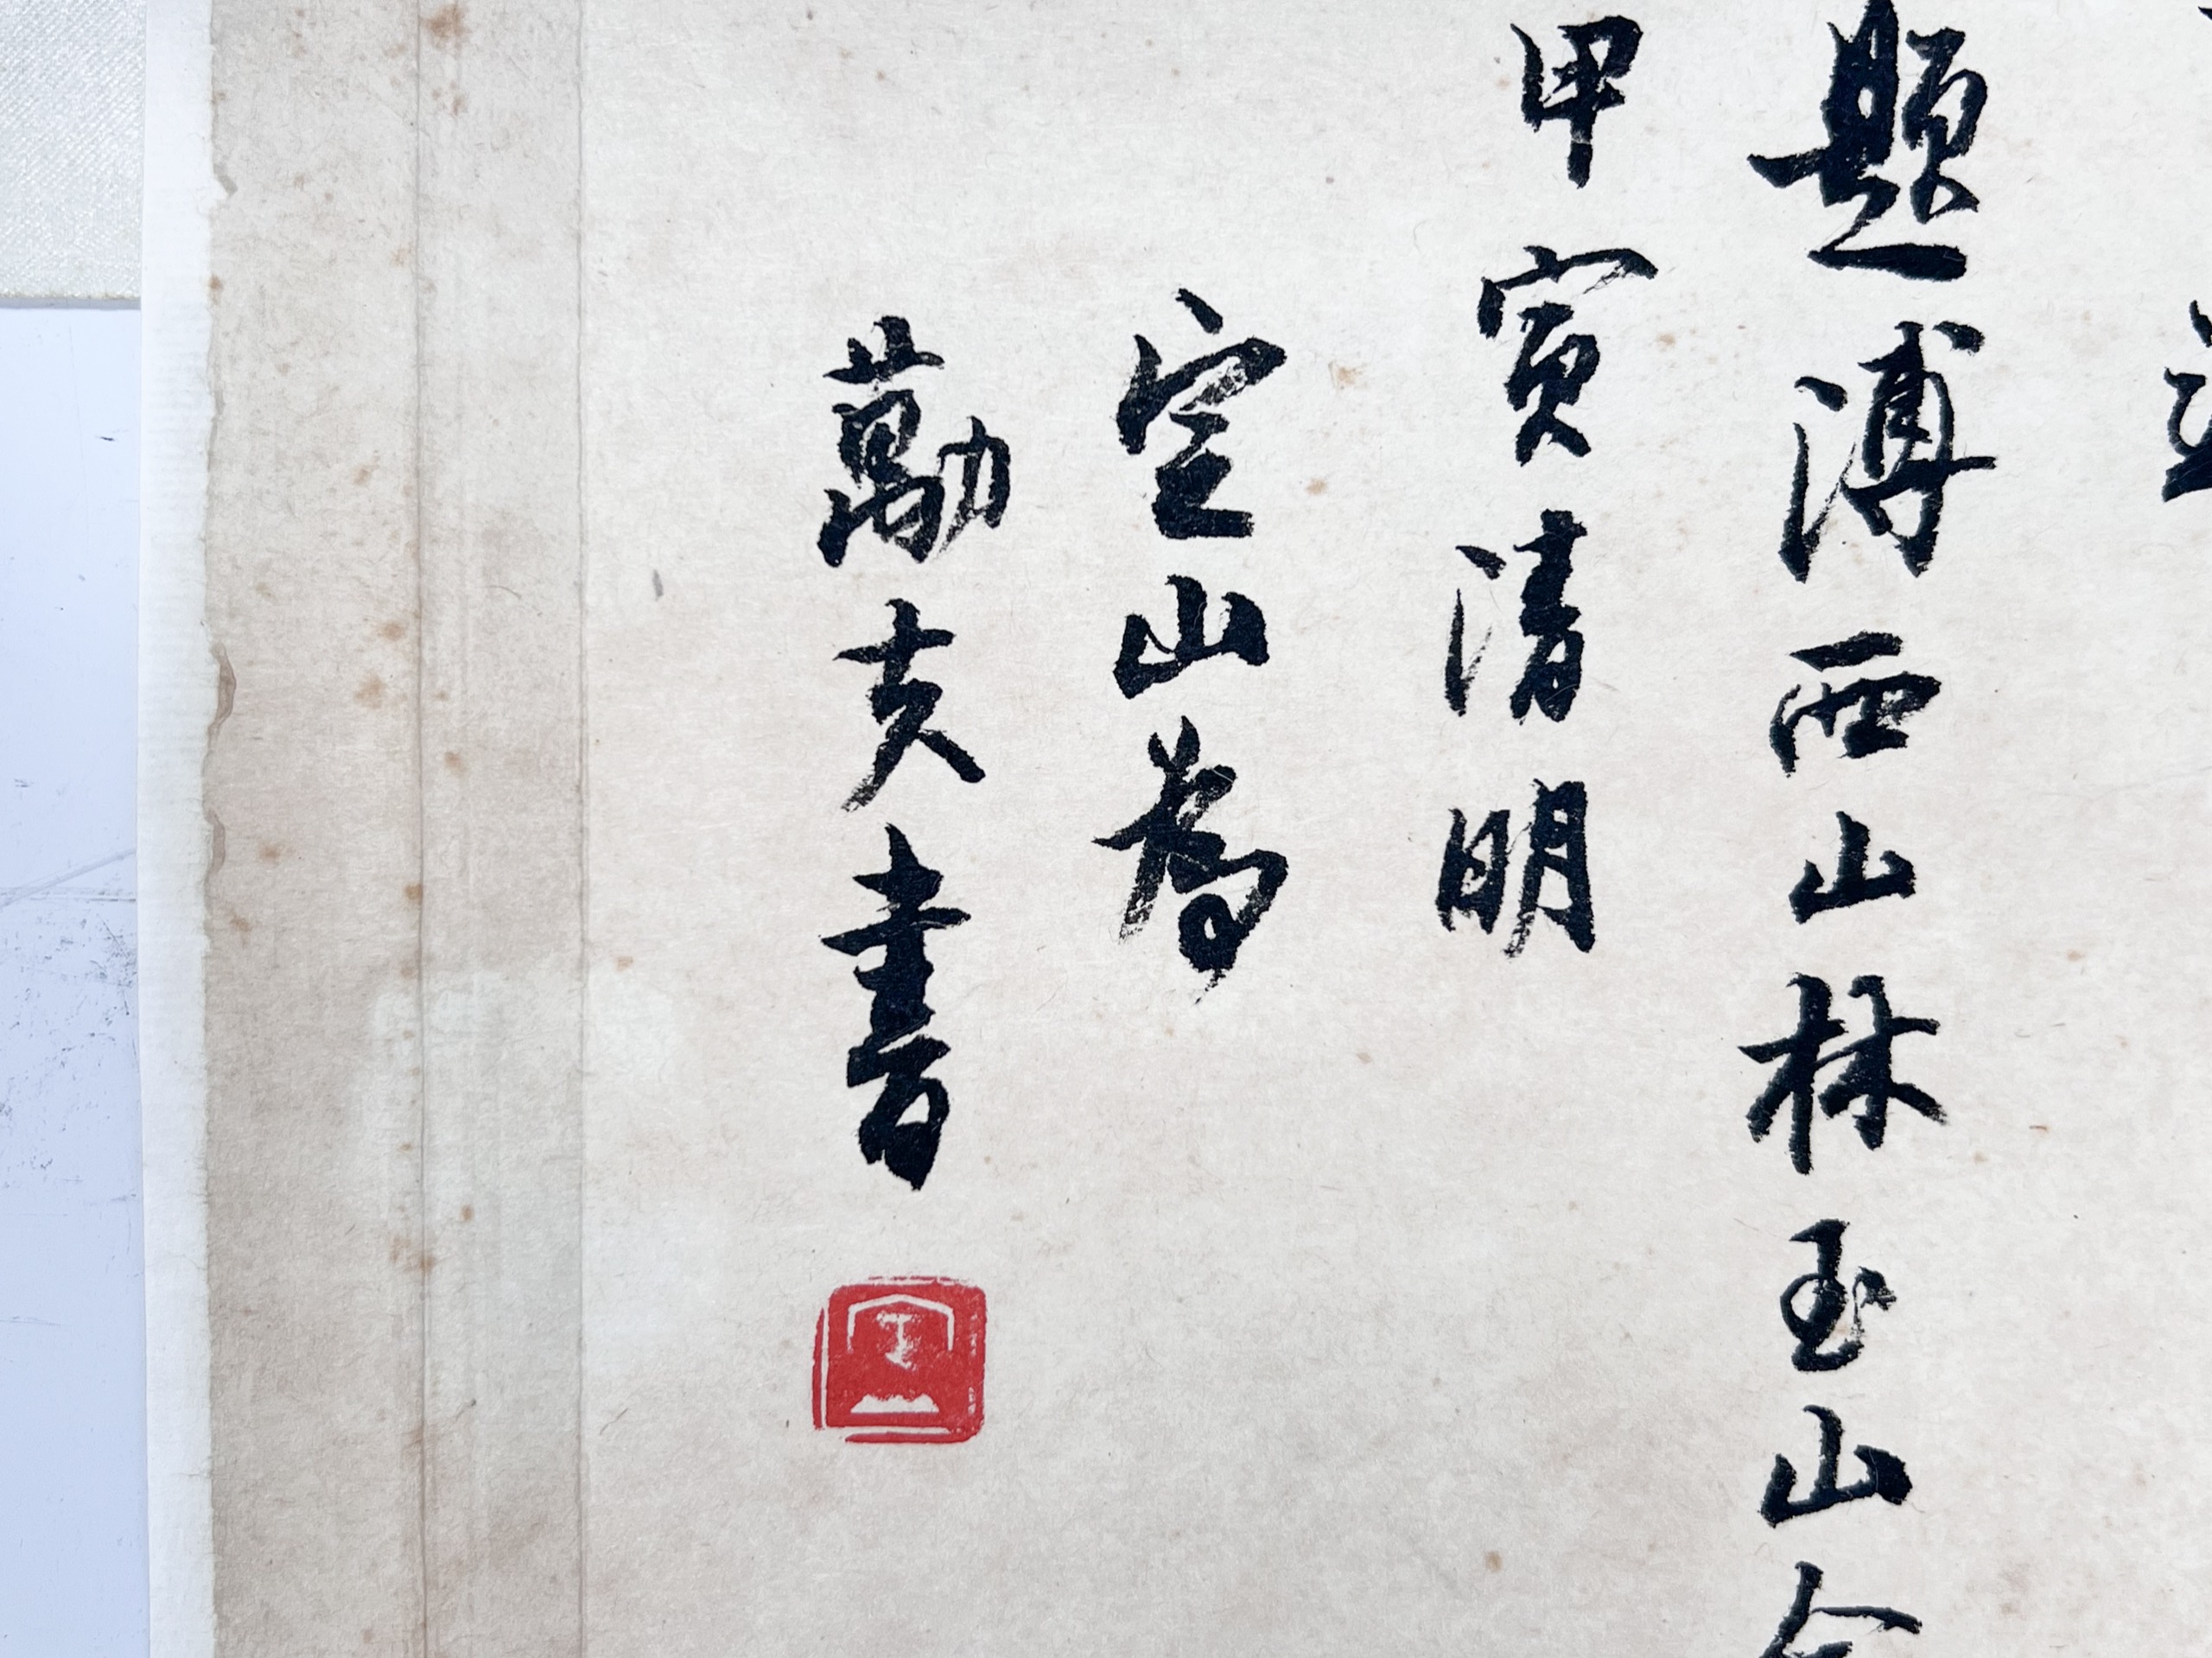 題溥西山林玉山合
甲寅清明
定山為
勱書
定山